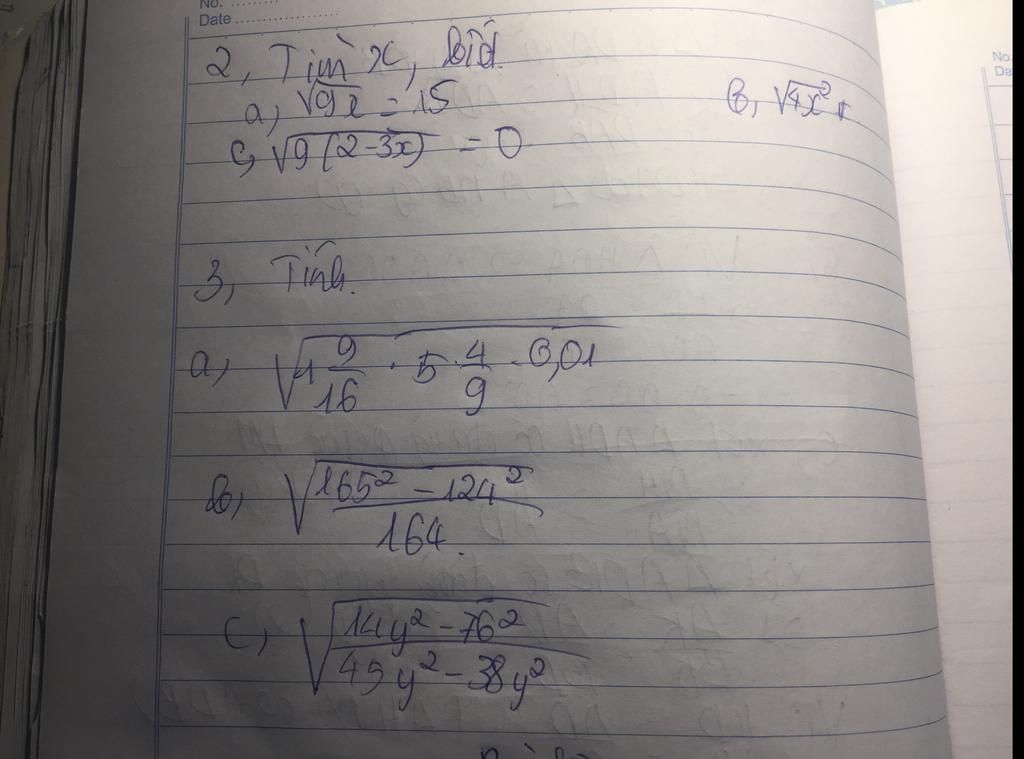 No. ........
Date ....................
2, Tìm x, biết.
a, √9x = 15 b, √4x²
c, √9(2-3x) = 0
3, Tính.
a, √1 9/16 . 5 4/9 . 0,01
b, √165² - 124² / 164.
c, √14y² - 76² / 45y² - 38y²
No.
Da